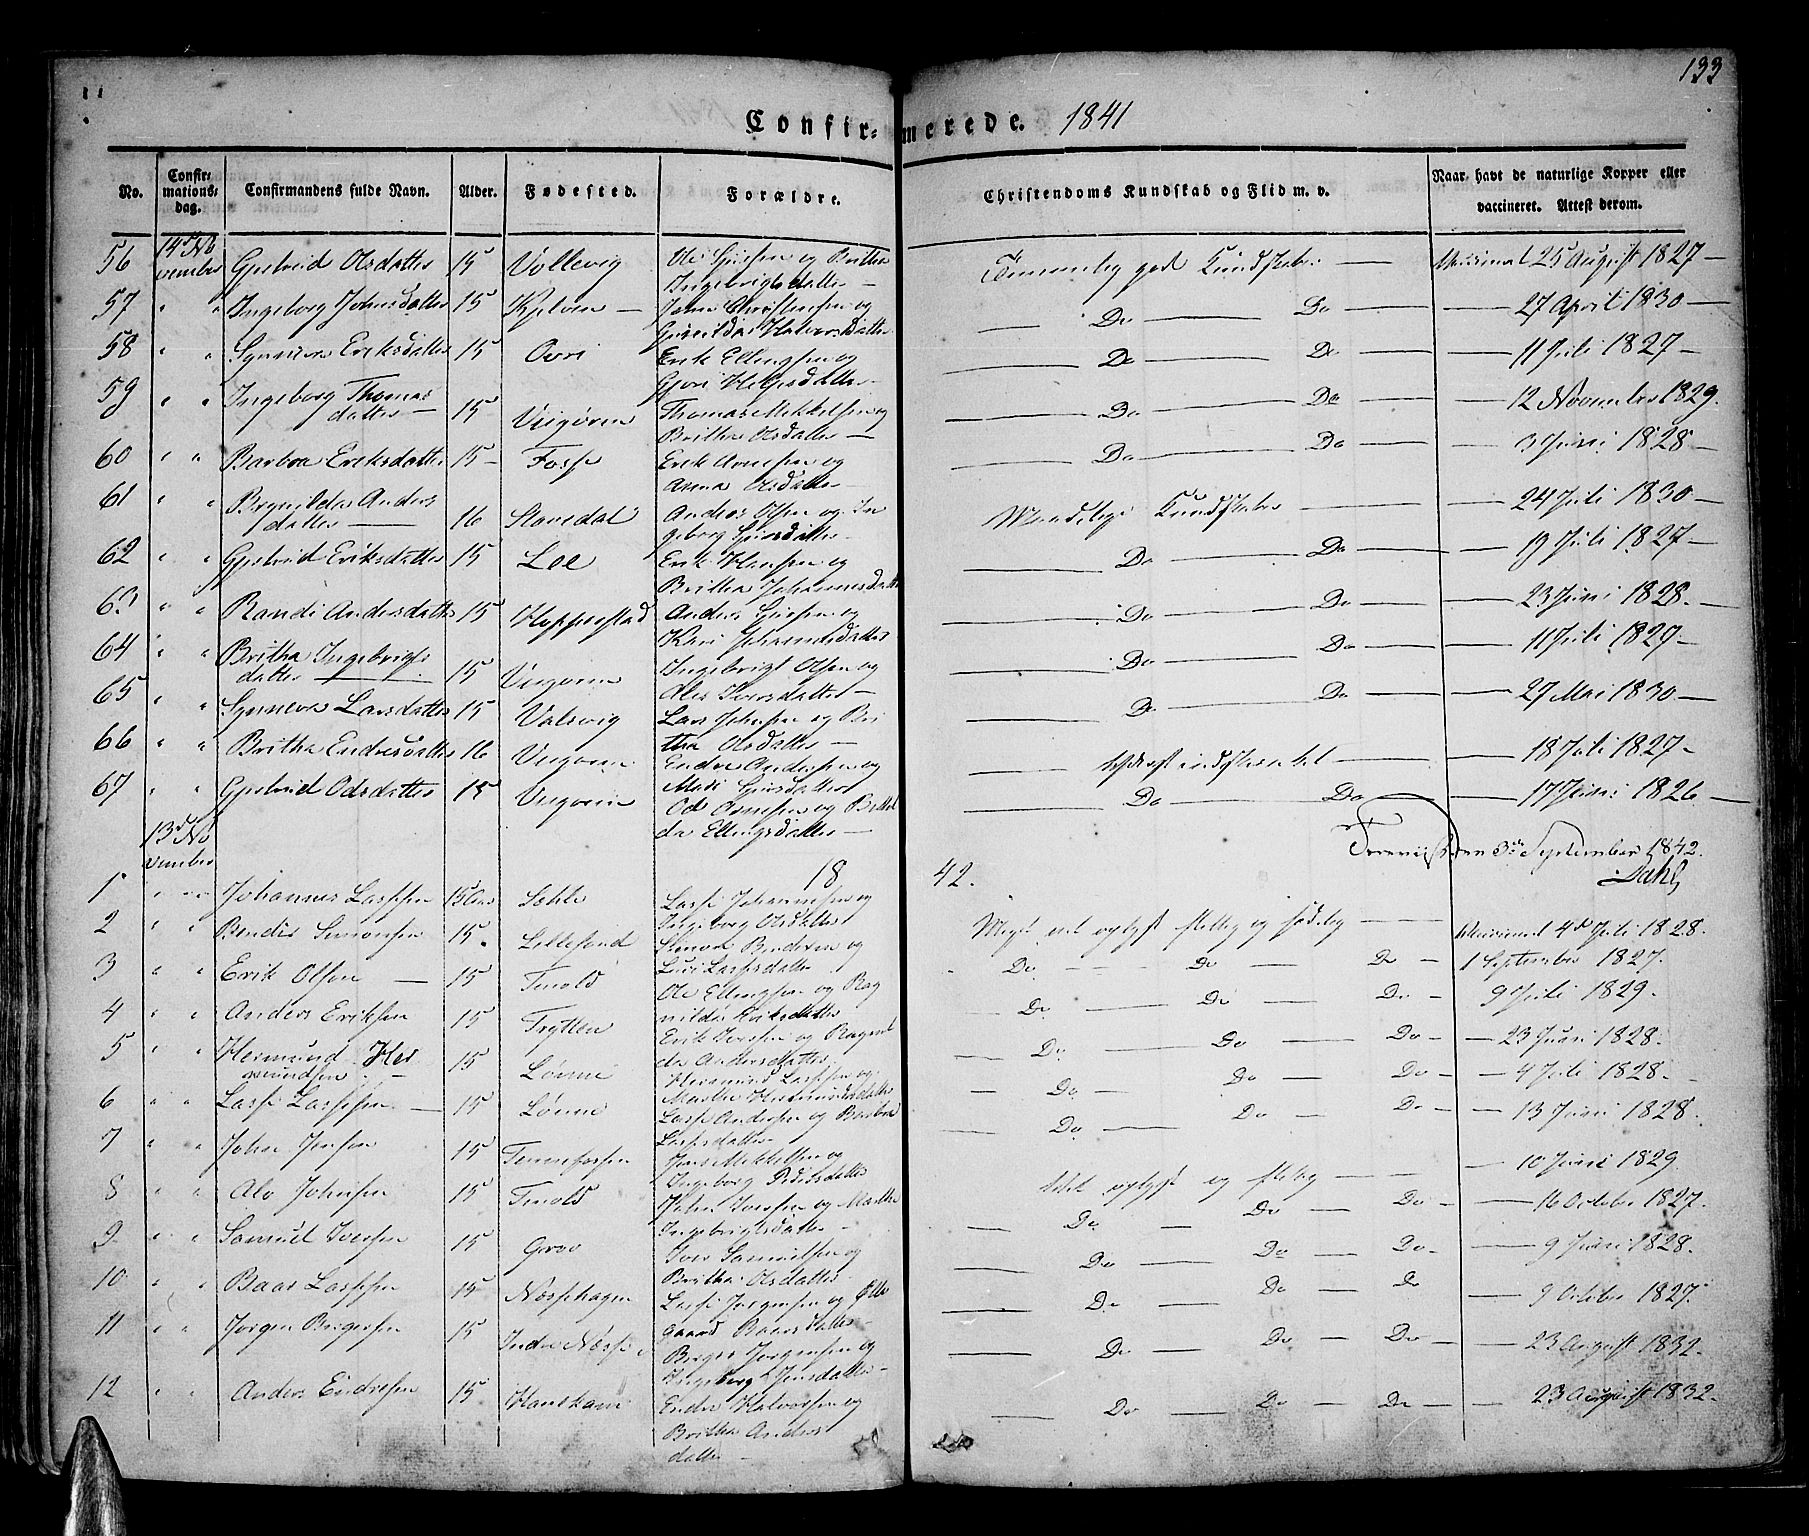 133
Confirmerede. 1841
No. Confirmationsdag. Confirmandens fulde Navn. Alder. Fødested. Forældre. Christendoms Kundskab og Flid m. v. Naar havt de naturlige Kopper eller vaccineret. Attest derom.
56 14de November Gjertrud Olsdatter 15 Vallevig Ole Giersen og Britha Ingebrigtsdatter Temmelig god Kundskab Vaccineret 25 August 1827
57 " " Ingeborg Johnsdatter 15 John Christensen og Gunilda Halvorsdatter Do Do 27 April 1830
58 " " Synneva Eriksdatter 15 Ovri Erik Ellingsen og Gjori Helgesdatter Do Do 11 Juli 1827
59 " " Ingeborg Thomasdatter 15 Vigøren Thomas Mikkelsen og Britha Olsdatter Do Do 12 November 1829.
60 " " Barbra Eriksdatter 15 Fosse Erik Arnesen og Anna Olsdatter Do Do 3 Juni 1828
61 " " Brynilda Andersdatter 16 Stavedal Anders Olsen og Ingeborg Maadelige Kundskaber 24 Juli 1830
62 " " Gjertrud Eriksdatter 15 Loe Erik Hansen og Britha Johannesdatter Do Do 19 Juli 1827
63 " " Randi Andersdatter 15 Hopperstad Anders Giersen og Kari Johannesdatter Do Do 23 Juni 1828.
64 " " Britha Ingebrigtsdatter 15 Vigøren Ingebrigt Olsen og Do Do 11 Juli 1829
65 " Synneva Larsdatter 15 Valsvig Lars Johnsen og Britha Olsdatter Do Do 27 Mai 1830
66 " " Britha Endresdatter 16 Vigøren Endre Andersen og Mari Yderst indskrænket 18 Juli 1827
67 " " Gjertrud Odsdatter 15 Vigøren Od Arnesen og Ellingsdatter Do Do 17 Juni 1826
den 3de September 1842.
Dahl
13de November
1842.
1 " " Johannes Lassesen 15 Aar Sæhle Lasse Johannesen og Ingeborg Olsdatter Meget vel oplyst flittig og sædelig Vaccineret 4de Juli 1828.
2 " " Bendix Simonsen 15. Lillesand Simon Bendixen og Guri Lassesdatter Do Do Do 1 September 1827.
3 " " Erik Olsen 15 Tenold Ole Ellingsen og Ragnilda Eriksdatter Do Do Do 9 Juli 1829.
4 " " Anders Eriksen 15 Trytten Erik Iversen og Ragnilda Andersdatter Do Do Do 23 Juni 1828.
5 " " Hermund Hermundsen 15 Lønne Hermund Lassesen og Marthe Hermundsdatter Do Do Do 4 Juli 1828.
6 " " Lasse Lassesen 15 Lønne Lasse Andersen og Barbra Lassesdatter Do Do Do 13 Juni 1828.
7 " " John Jensen 15 Tennefossen Jens Mikkelsen og Ingeborg Pedersdatter Vel oplyst og flittig 10 Juni 1829
8 " " Alv Johnsen 15 Tenold John Iversen og Marthe Ingebrigtsdatter Do Do Do 16 October 1827.
9 " " Samuel Iversen 15 Grov Iver Samuelsen og Britha Olsdatter Do Do Do 9 Juni 1828.
10 " " Baar Lassesen 15 Næssehagen Lasse Jørgensen og Ollegaard Baarsdatter Do Do Do 9 October 1827.
11 " " Jørgen Birgersen 15 Indre Næsse Birger Jørgensen og Ingeborg Jensdatter Do Do Do 23 August 1832.
12 " " Anders Endresen 15 Endre Halvorsen og Britha Andersdatter Do Do Do 23 August 1832.